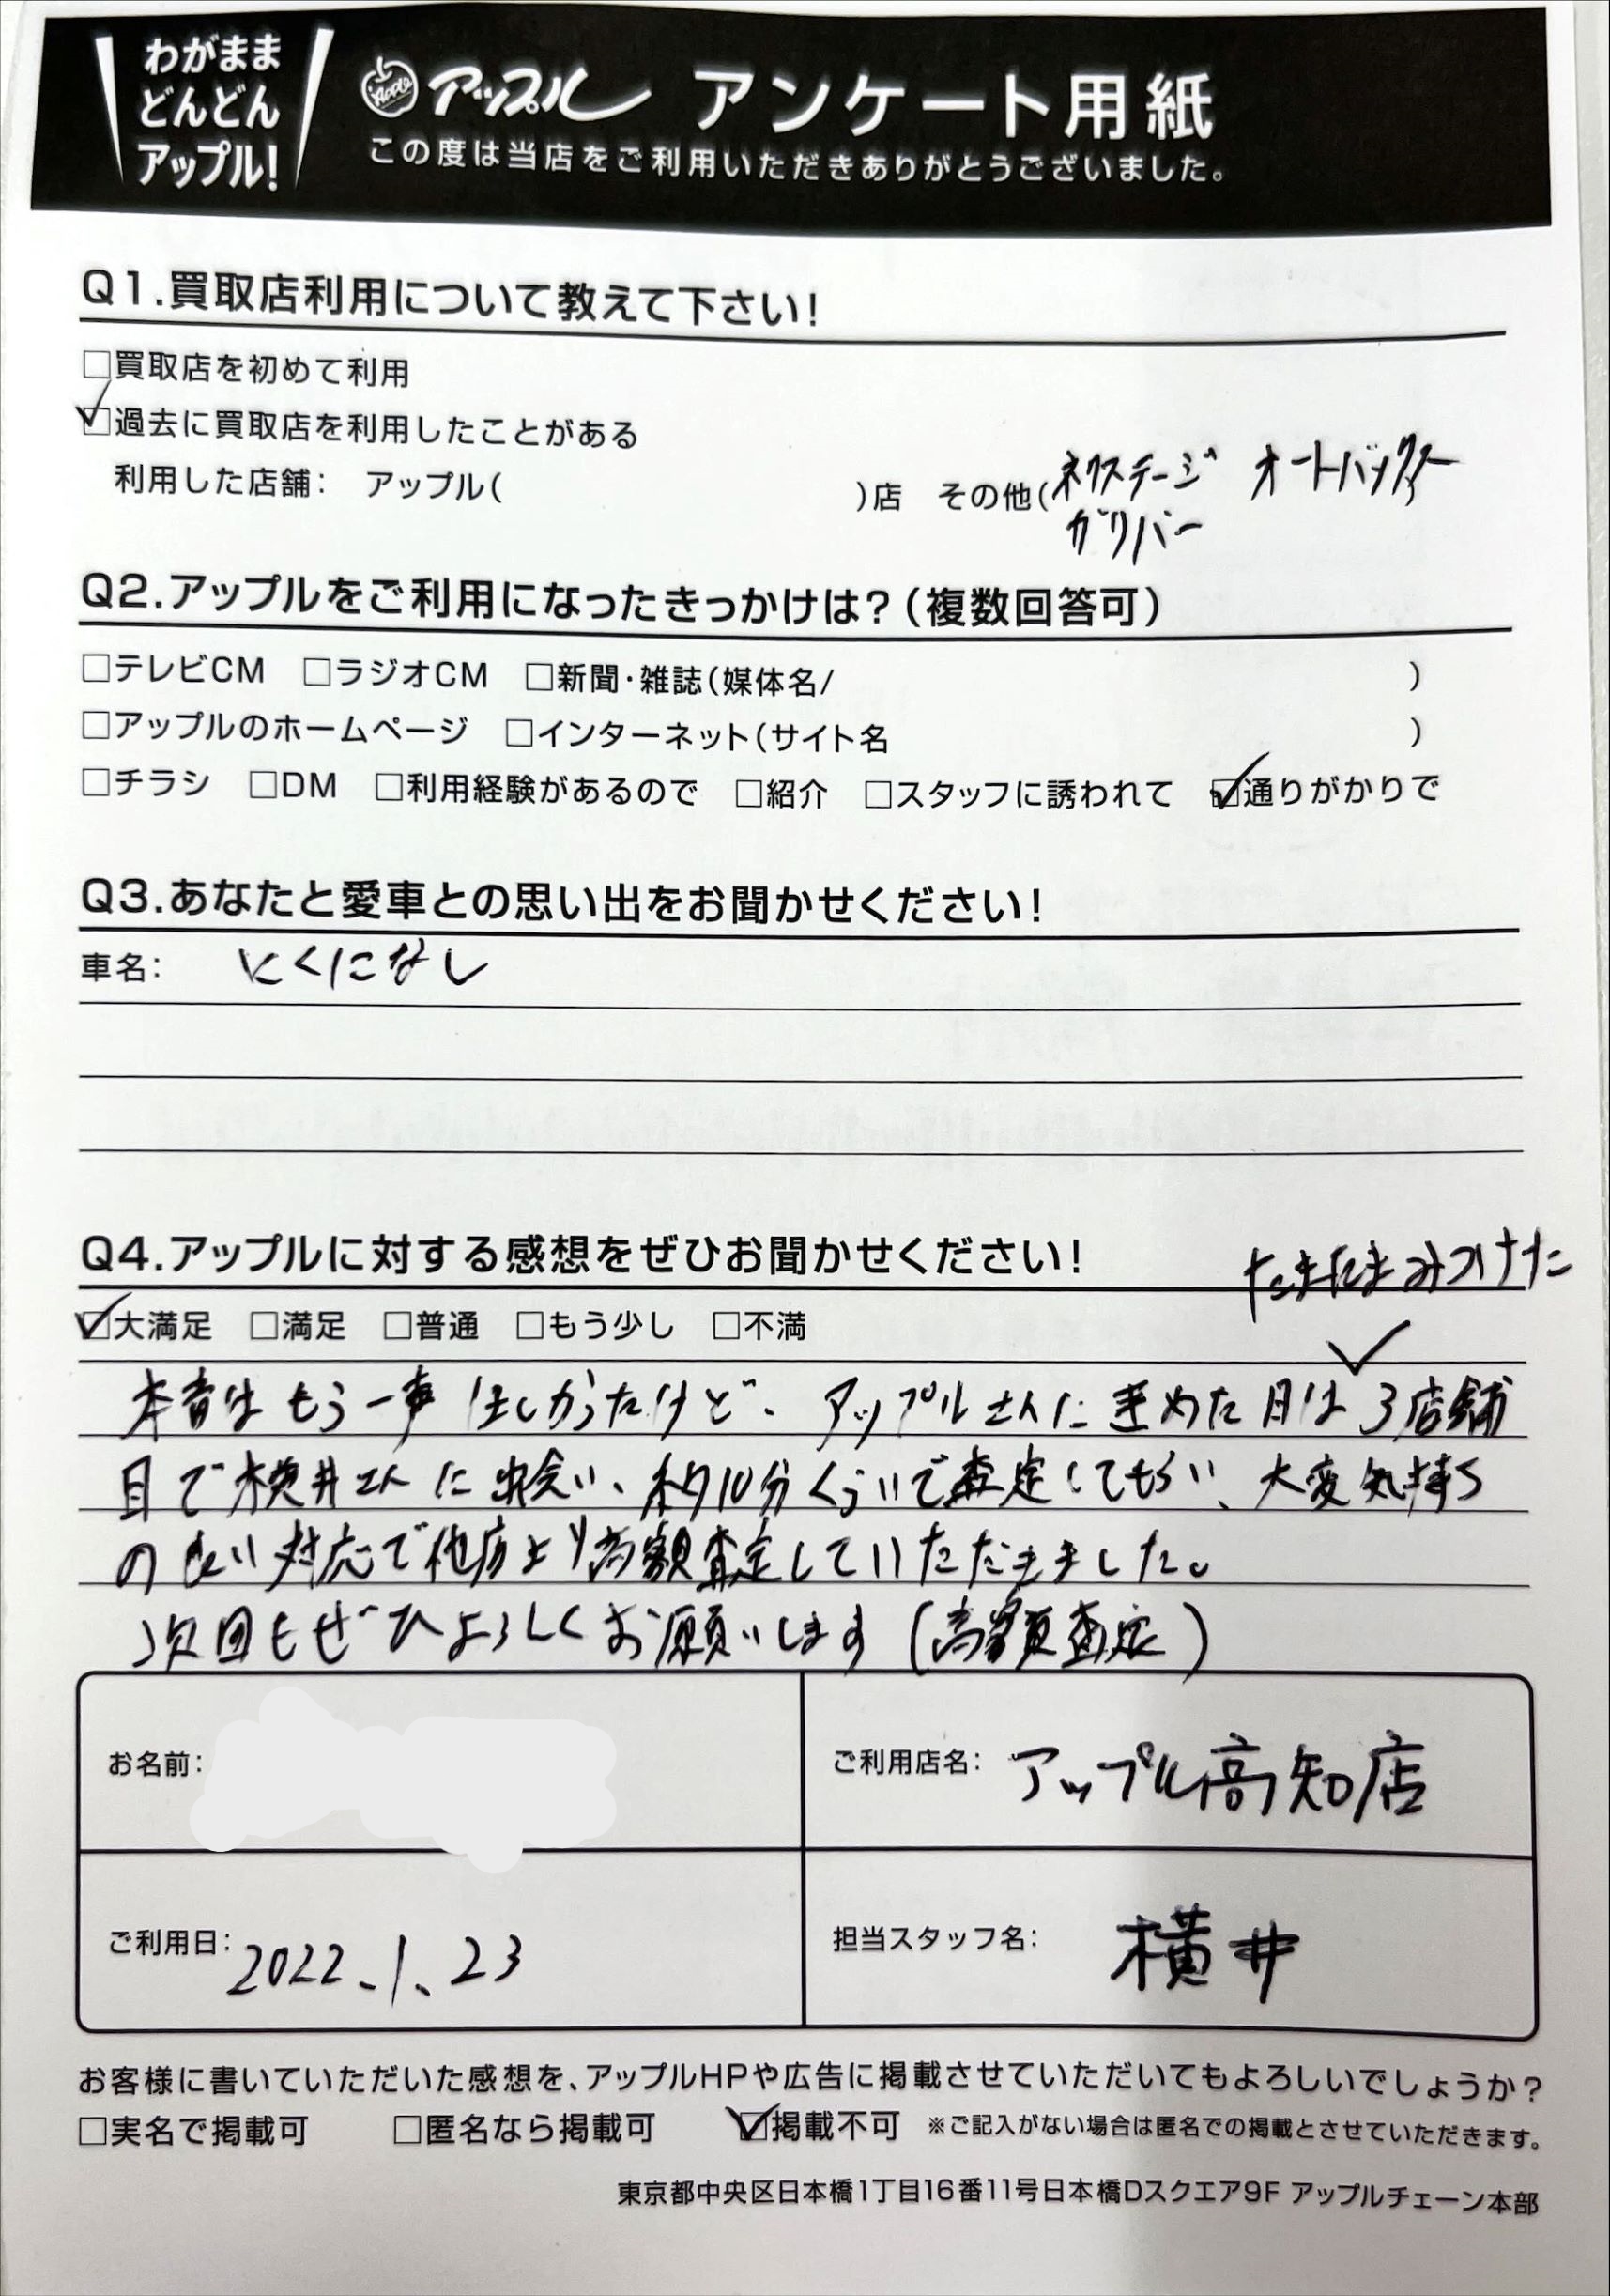 わがまま
どんどん
アップル!
Apple アップル アンケート用紙
この度は当店をご利用いただきありがとうございました。
Q1.買取店利用について教えて下さい!
□買取店を初めて利用
☑過去に買取店を利用したことがある
利用した店舗: アップル( )店 その他(ネクステージ オートバックス
ガリバー
Q2.アップルをご利用になったきっかけは?(複数回答可)
□テレビCM □ラジオCM □新聞・雑誌(媒体名/ )
□アップルのホームページ □インターネット(サイト名 )
□チラシ □DM □利用経験があるので □紹介 □スタッフに誘われて ☑通りがかりで
Q3.あなたと愛車との思い出をお聞かせください!
車名: とくになし
Q4.アップルに対する感想をぜひお聞かせください!
たまたまみつけた
☑大満足 □満足 □普通 □もう少し □不満
本音はもう一声ほしかったけど、アップルさんに決めた日は3店舗
目で横井さんに出会い、約10分くらいで査定してもらい、大変気持ち
の良い対応で他店より高額査定していただきました。
次回もぜひよろしくお願いします(高額査定)
お名前:
ご利用店名: アップル高知店
ご利用日: 2022.1.23
担当スタッフ名: 横井
お客様に書いていただいた感想を、アップルHPや広告に掲載させていただいてもよろしいでしょうか?
□実名で掲載可 □匿名なら掲載可 ☑掲載不可 ※ご記入がない場合は匿名での掲載とさせていただきます。
東京都中央区日本橋1丁目16番11号日本橋Dスクエア9F アップルチェーン本部